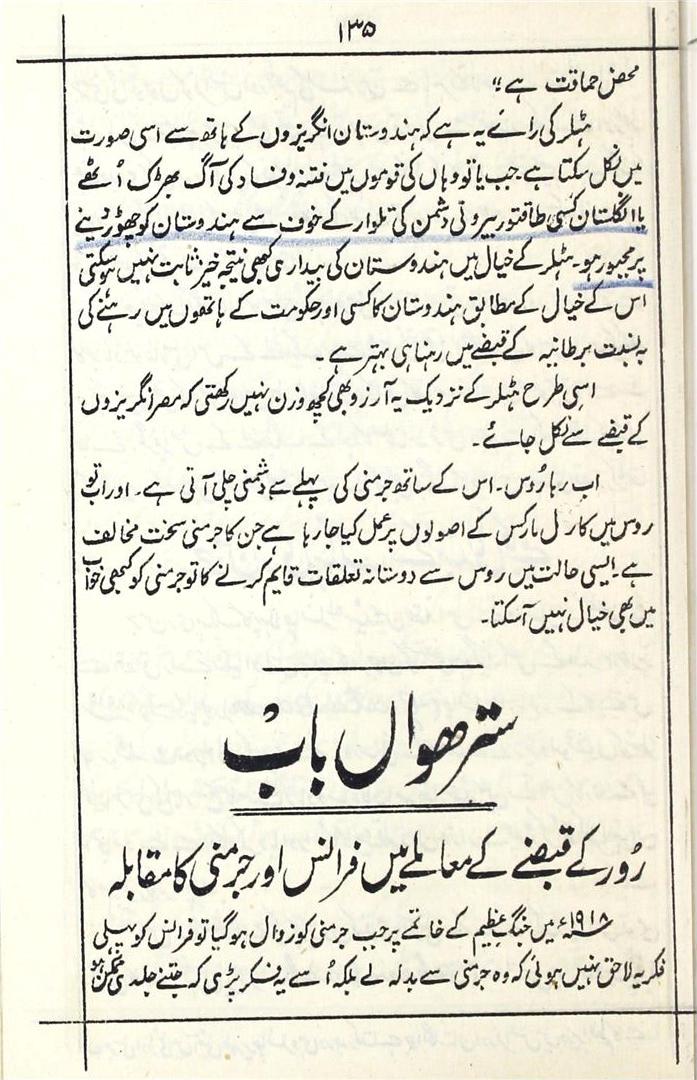 ۱۳۵
محض حماقت ہے"
ہٹلر کی رائے یہ ہے کہ ہندوستان انگریزوں کے ہاتھ سے اسی صورت
میں نکل سکتا ہے۔ جب یا تو وہاں کی قوموں میں فتنہ و فساد کی آگ بھڑک اُٹھے
یا انگلستان کسی طاقتور بیرونی دشمن کی تلوار کے خوف سے ہندوستان کو چھوڑ دینے
پر مجبور ہو۔ ہٹلر کے خیال میں ہندوستان کی بیداری کبھی نتیجہ خیز ثابت نہیں ہو سکتی
اس کے خیال کے مطابق ہندوستان کا کسی اور حکومت کے ہاتھوں میں رہنے کی
بہ نسبت برطانیہ کے قبضے میں رہنا ہی بہتر ہے۔
اسی طرح ہٹلر کے نزدیک یہ آرزو بھی کچھ وزن نہیں رکھتی کہ مصر انگریزوں
کے قبضے سے نکل جائے۔
اب رہا رُوس۔ اس کے ساتھ جرمنی کی پہلے سے دشمنی چلی آتی ہے۔ اور اب تو
روس میں کارل مارکس کے اصولوں پر عمل کیا جا رہا ہے جن کا جرمنی سخت مخالف
ہے۔ ایسی حالت میں روس سے دوستانہ تعلقات قایم کرنے کا تو جرمنی کو کبھی خواب
میں بھی خیال نہیں آ سکتا۔
سترھواں باب
رُور کے قبضے کے معاملے میں فرانس اور جرمنی کا مقابلہ
۱۹۱۸ء میں جنگ عظیم کے خاتمے پر جب جرمنی کو زوال ہو گیا تو فرانس کو پہلی
فکر یہ لاحق نہیں ہوئی کہ وہ جرمنی سے بدلہ لے بلکہ اُسے یہ فکر پڑی کہ جتنے جلدی ممکن ہو